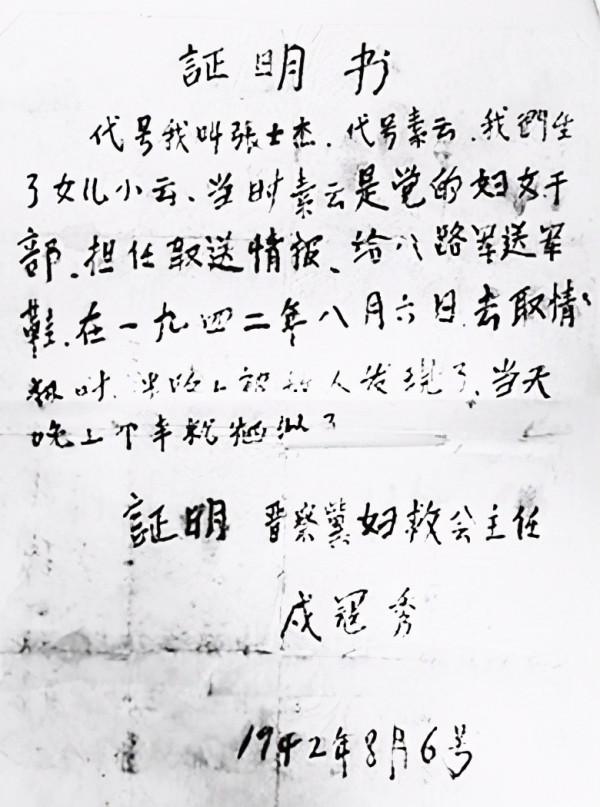 証明书
代号我叫張士杰、代号素云、我們生
了女儿小云、当时素云是党的妇女干
部、担任取送情报、给八路军送军
鞋、在一九四二年八月六日去取情
报时、半路上被敌人发现了、当天
晚上不幸就牺牲了
証明 晋察冀妇救会主任
戎冠秀
1942年8月6号